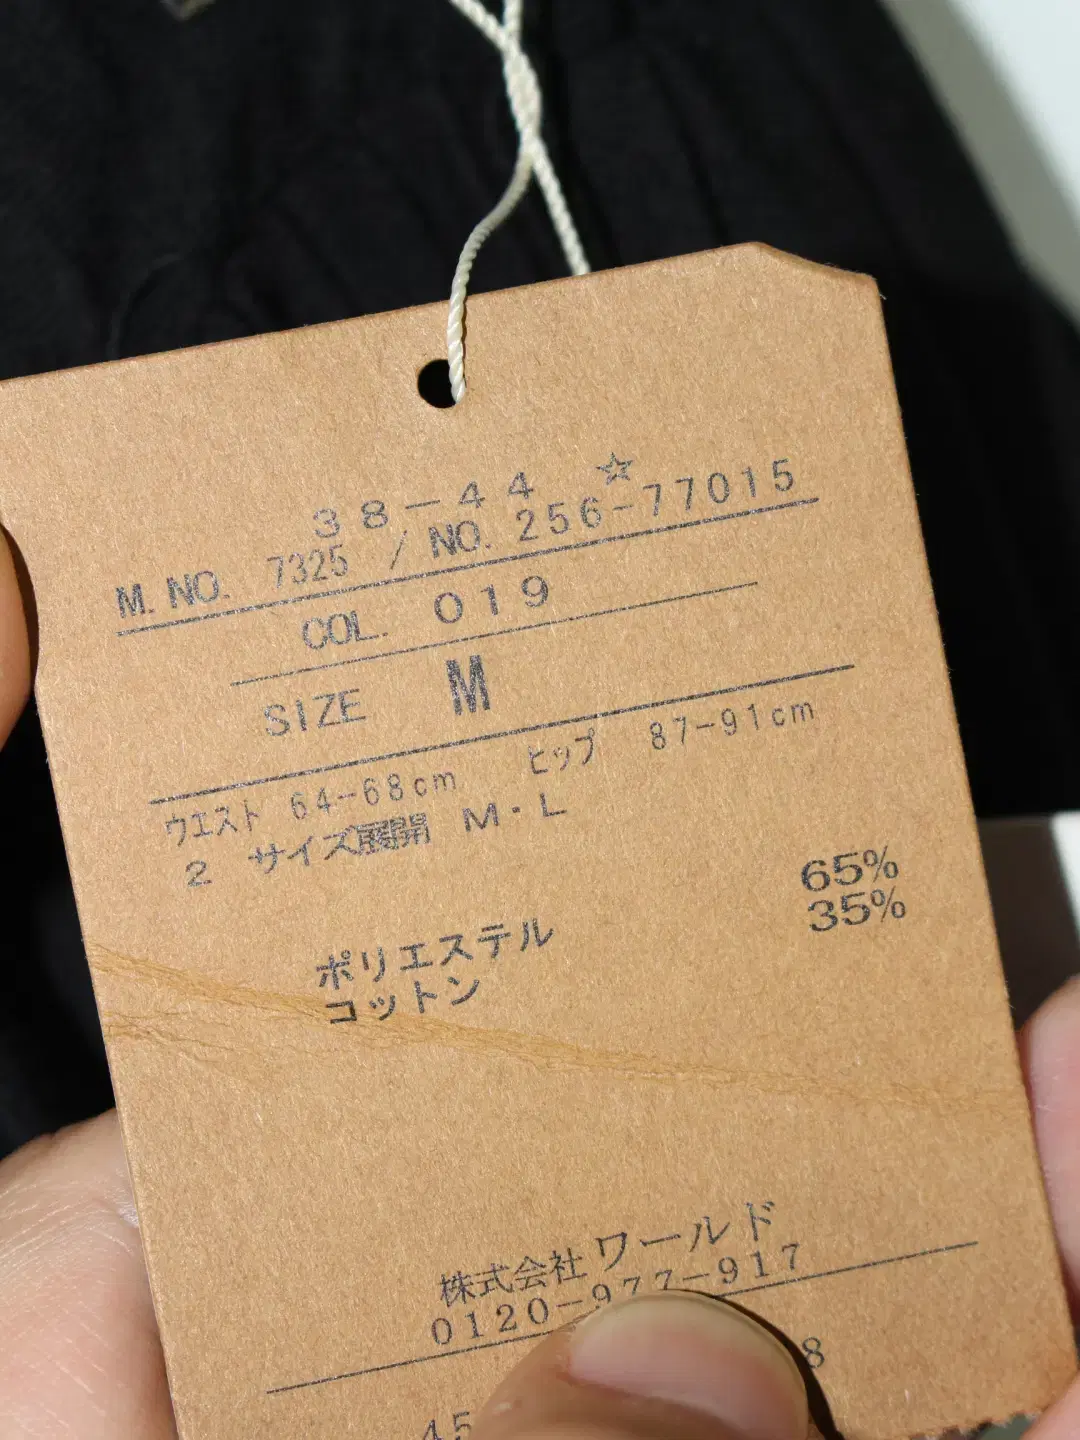 38-44 ☆
M. NO. 7325 / NO. 256-77015
COL. 019
SIZE M
ウエスト 64-68cm ヒップ 87-91cm
2 サイズ展開 M・L
ポリエステル 65%
コットン 35%
株式会社ワールド
0120-977-917
8
45